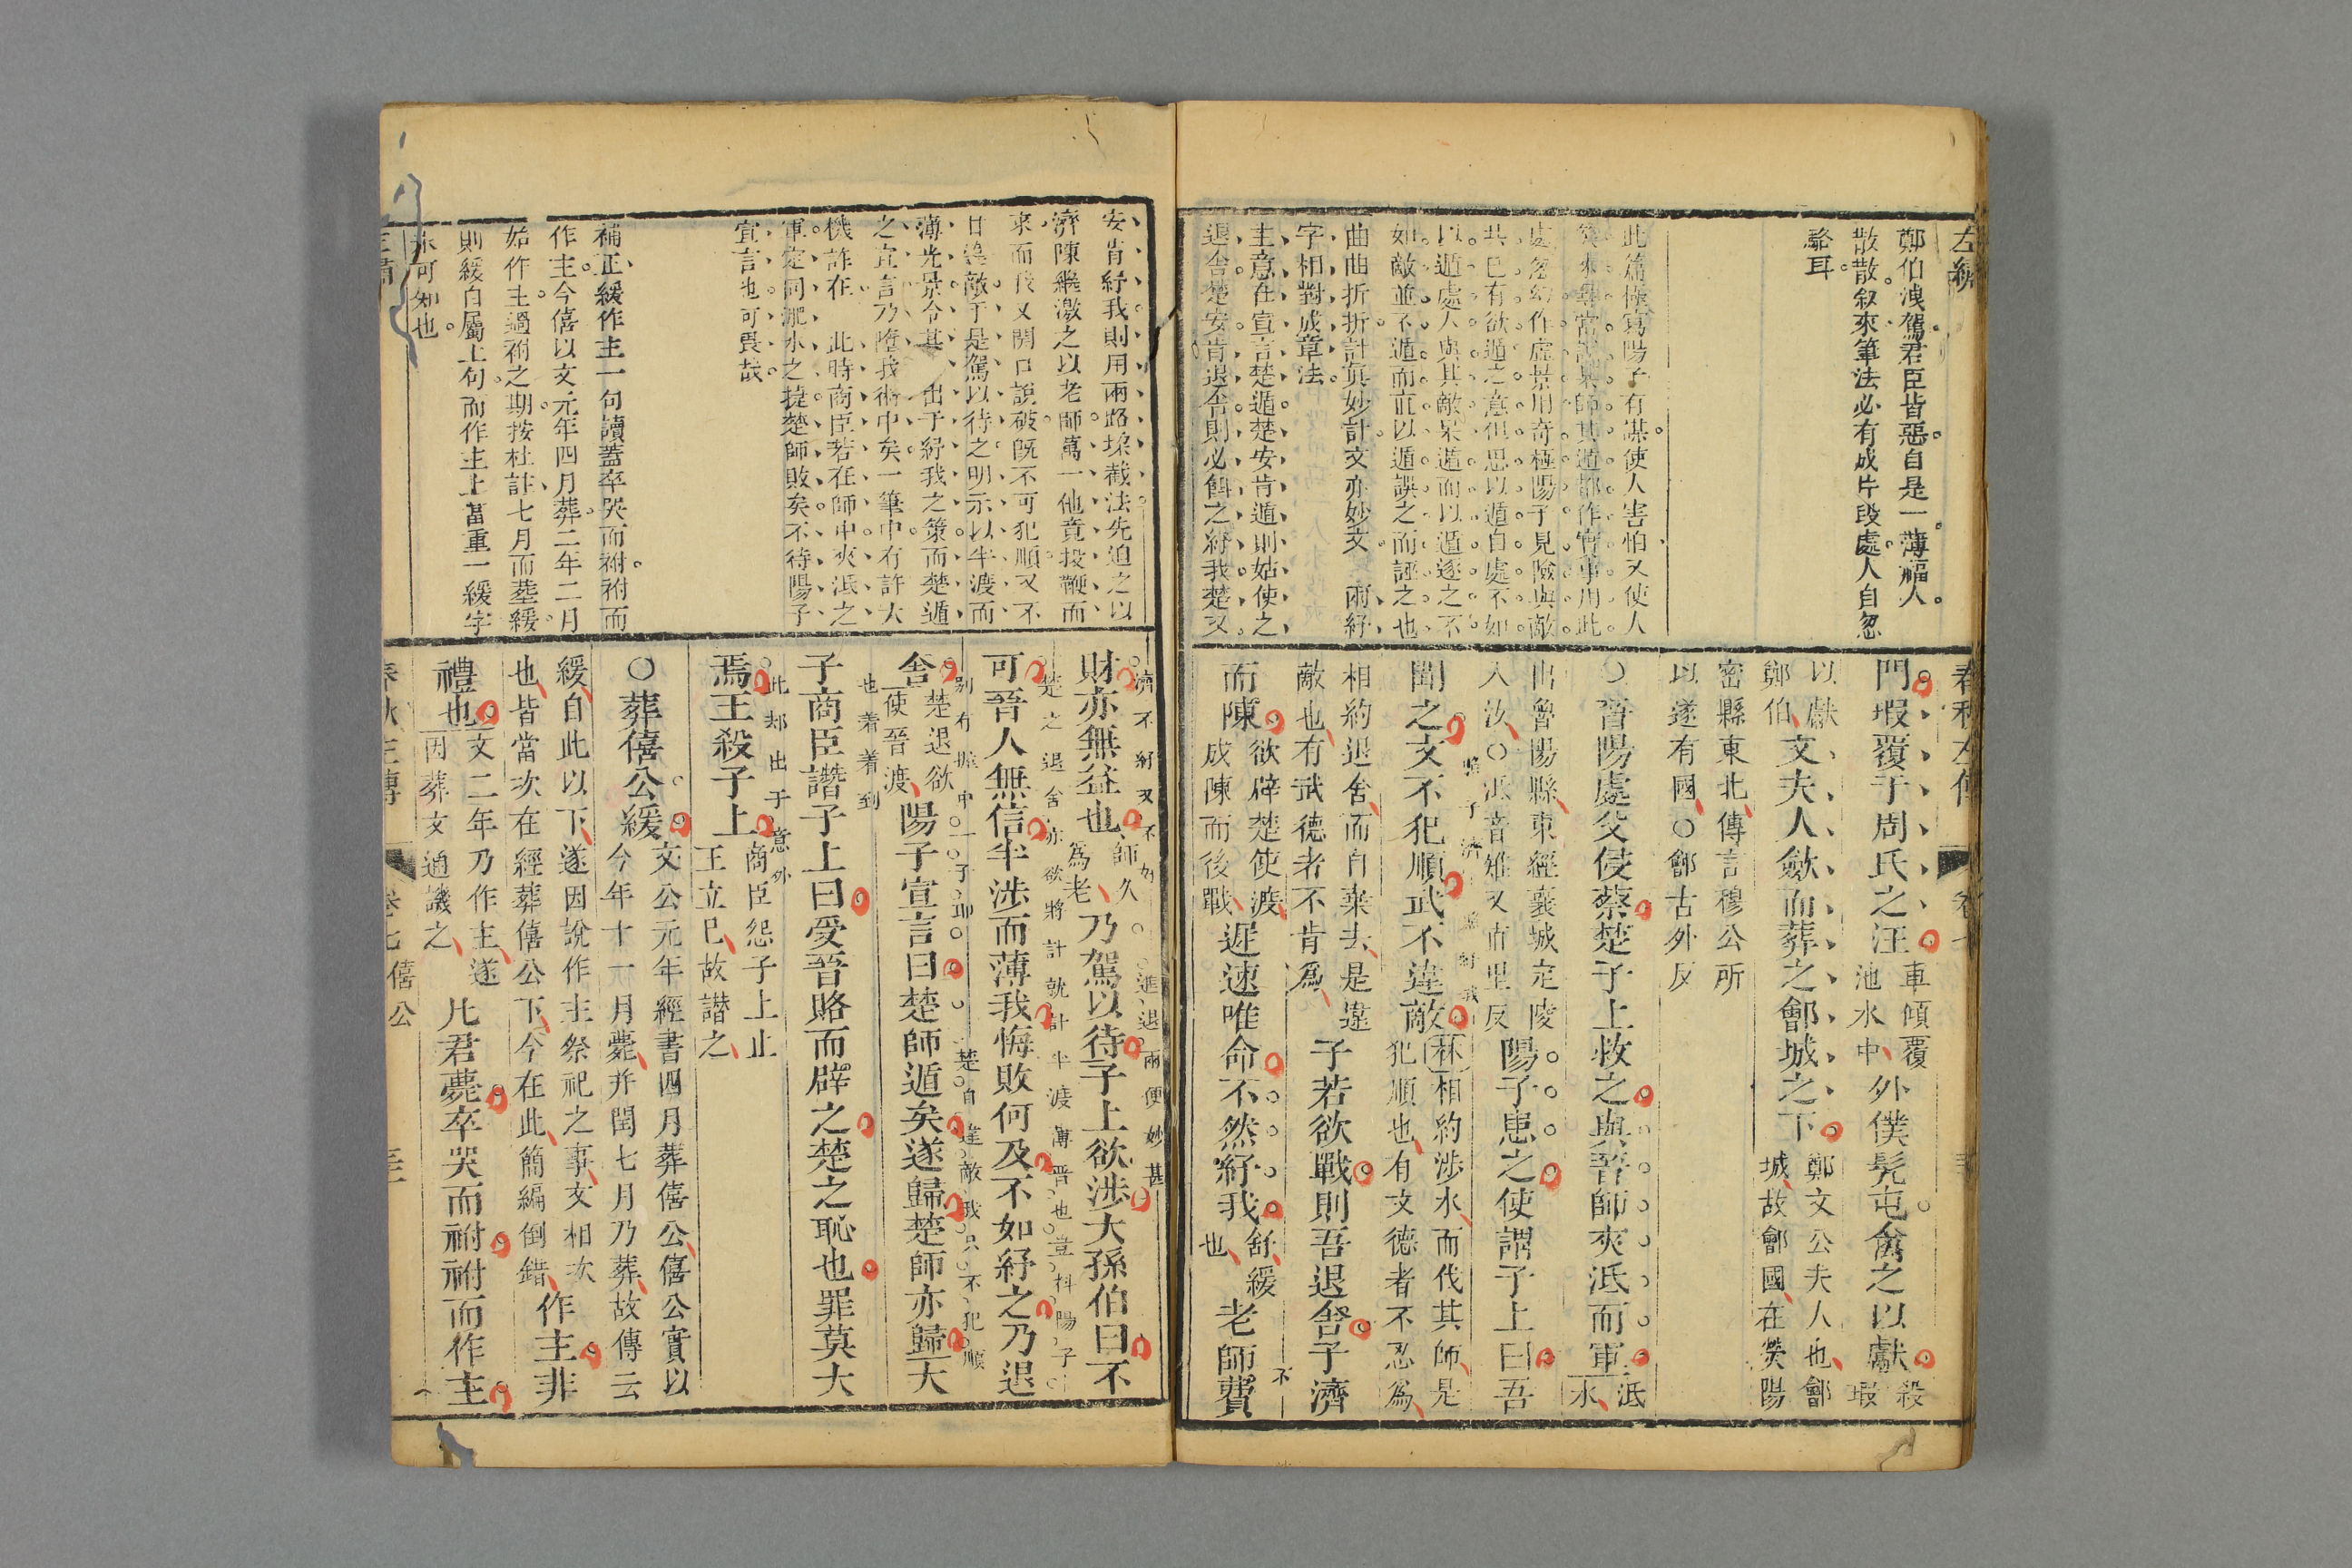 左繡
鄭伯洩駕君臣皆惡自是一薄福人
散散叙來筆法必有成片段處人自忽
畧耳
此篇極寫陽子有謀使人害怕又使人
處忽幻作虛景用奇極陽子見險與敵
共已有欲遁之意但思以遁自處不如
以遁處人與其敵杲遁而以遁逐之不
如敵並不遁而直以遁誤之而誣之也
曲曲折折計真妙計文亦妙文 兩紓
字相對成章法
主意在宣言楚遁楚安肯遁則姑使之
退舍楚安肯退舍則必餌之紓我楚又
春秋左傳 卷七
門瑕覆于周氏之汪
車傾覆
池水中
外僕髡屯禽之以獻
殺
瑕
以獻
鄭伯
文夫人斂而葬之鄶城之下
鄭文公夫人也鄶
城故鄶國在滎陽
密縣東北傳言穆公所
以遂有國○鄶古外反
○晉陽處父侵蔡楚子上救之與晉師夾泜而軍
泜
水
出魯陽縣東經襄城定陵
入汝○泜音雉又直里反
陽子患之使謂子上曰吾
聞之文不犯順武不違敵
林相約涉水而伐其師是
犯順也有文德者不忍為
相約退舍而自棄去是違
敵也有武德者不肯為
子若欲戰則吾退舍子濟
而陳
欲辟楚使渡
成陳而後戰
遲速唯命不然紓我
舒緩
也
老師費
安肯紓我則用兩路垜截法先迫之以
濟陳繼激之以老師萬一他竟投鞭而
來而我又開口說破旣不可犯順又不
甘違敵于是駕以待之明示以半渡而
薄光景令其 出于紓我之策而楚遁
之宣言乃墮我術中矣一筆中有許大
機詐在 此時商臣若在師中夾泜之
軍定同淝水之捷楚師敗矣不待陽子
宣言也可畏哉
補正緩作主一句讀蓋卒哭而祔祔而
作主今僖以文元年四月葬二年二月
始作主過祔之期按杜註七月而葬緩
則緩自屬上句而作主上當重一緩字
亦可知也
濟不紓又不好
進退兩便妙甚
財亦無益也
師久
為老
乃駕以待子上欲涉大孫伯曰不
楚之退舍亦欲將計就計半渡薄晉也豈料陽子
可晉人無信半涉而薄我悔敗何及不如紓之乃退
舍
楚退欲
使晉渡
陽子宣言曰楚師遁矣遂歸楚師亦歸大
也着着到
子商臣譖子上曰受晉賂而辟之楚之恥也罪莫大
此却出于意外
焉王殺子上
商臣怨子上止
王立已故譖之
○葬僖公緩
文公元年經書四月葬僖公僖公實以
今年十一月薨并閏七月乃葬故傳云
緩自此以下遂因說作主祭祀之事文相次
也皆當次在經葬僖公下今在此簡編倒錯
作主非
禮也
文二年乃作主遂
因葬文通譏之
凡君薨卒哭而祔祔而作主
春秋左傳 卷七 僖公